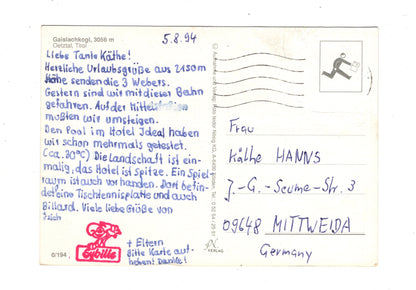 Gaislachkogl, 3056 m
Oetztal, Tirol
5.8.94
Liebe Tante Käthe!
Herzliche Urlaubsgrüße aus 2150m
Höhe senden die 3 Webers.
Gestern sind wir mit dieser Bahn
gefahren. Auf der Mittelstation
mußten wir umsteigen.
Den Pool im Hotel Ideal haben
wir schon mehrmals getestet.
(ca. 30°C) Die Landschaft ist ein-
malig, das Hotel ist Spitze. Ein Spiel-
raum ist auch vorhanden. Dort befin-
det eine Tischtennisplatte und auch
Billard. Viele liebe Grüße von
Euch
Sybille
+ Eltern
Bitte Karte auf-
heben! Danke!
6/194
VERLAG
Frau
Käthe HANNS
J.-G.-Seume-Str. 3
09648 MITTWEIDA
Germany